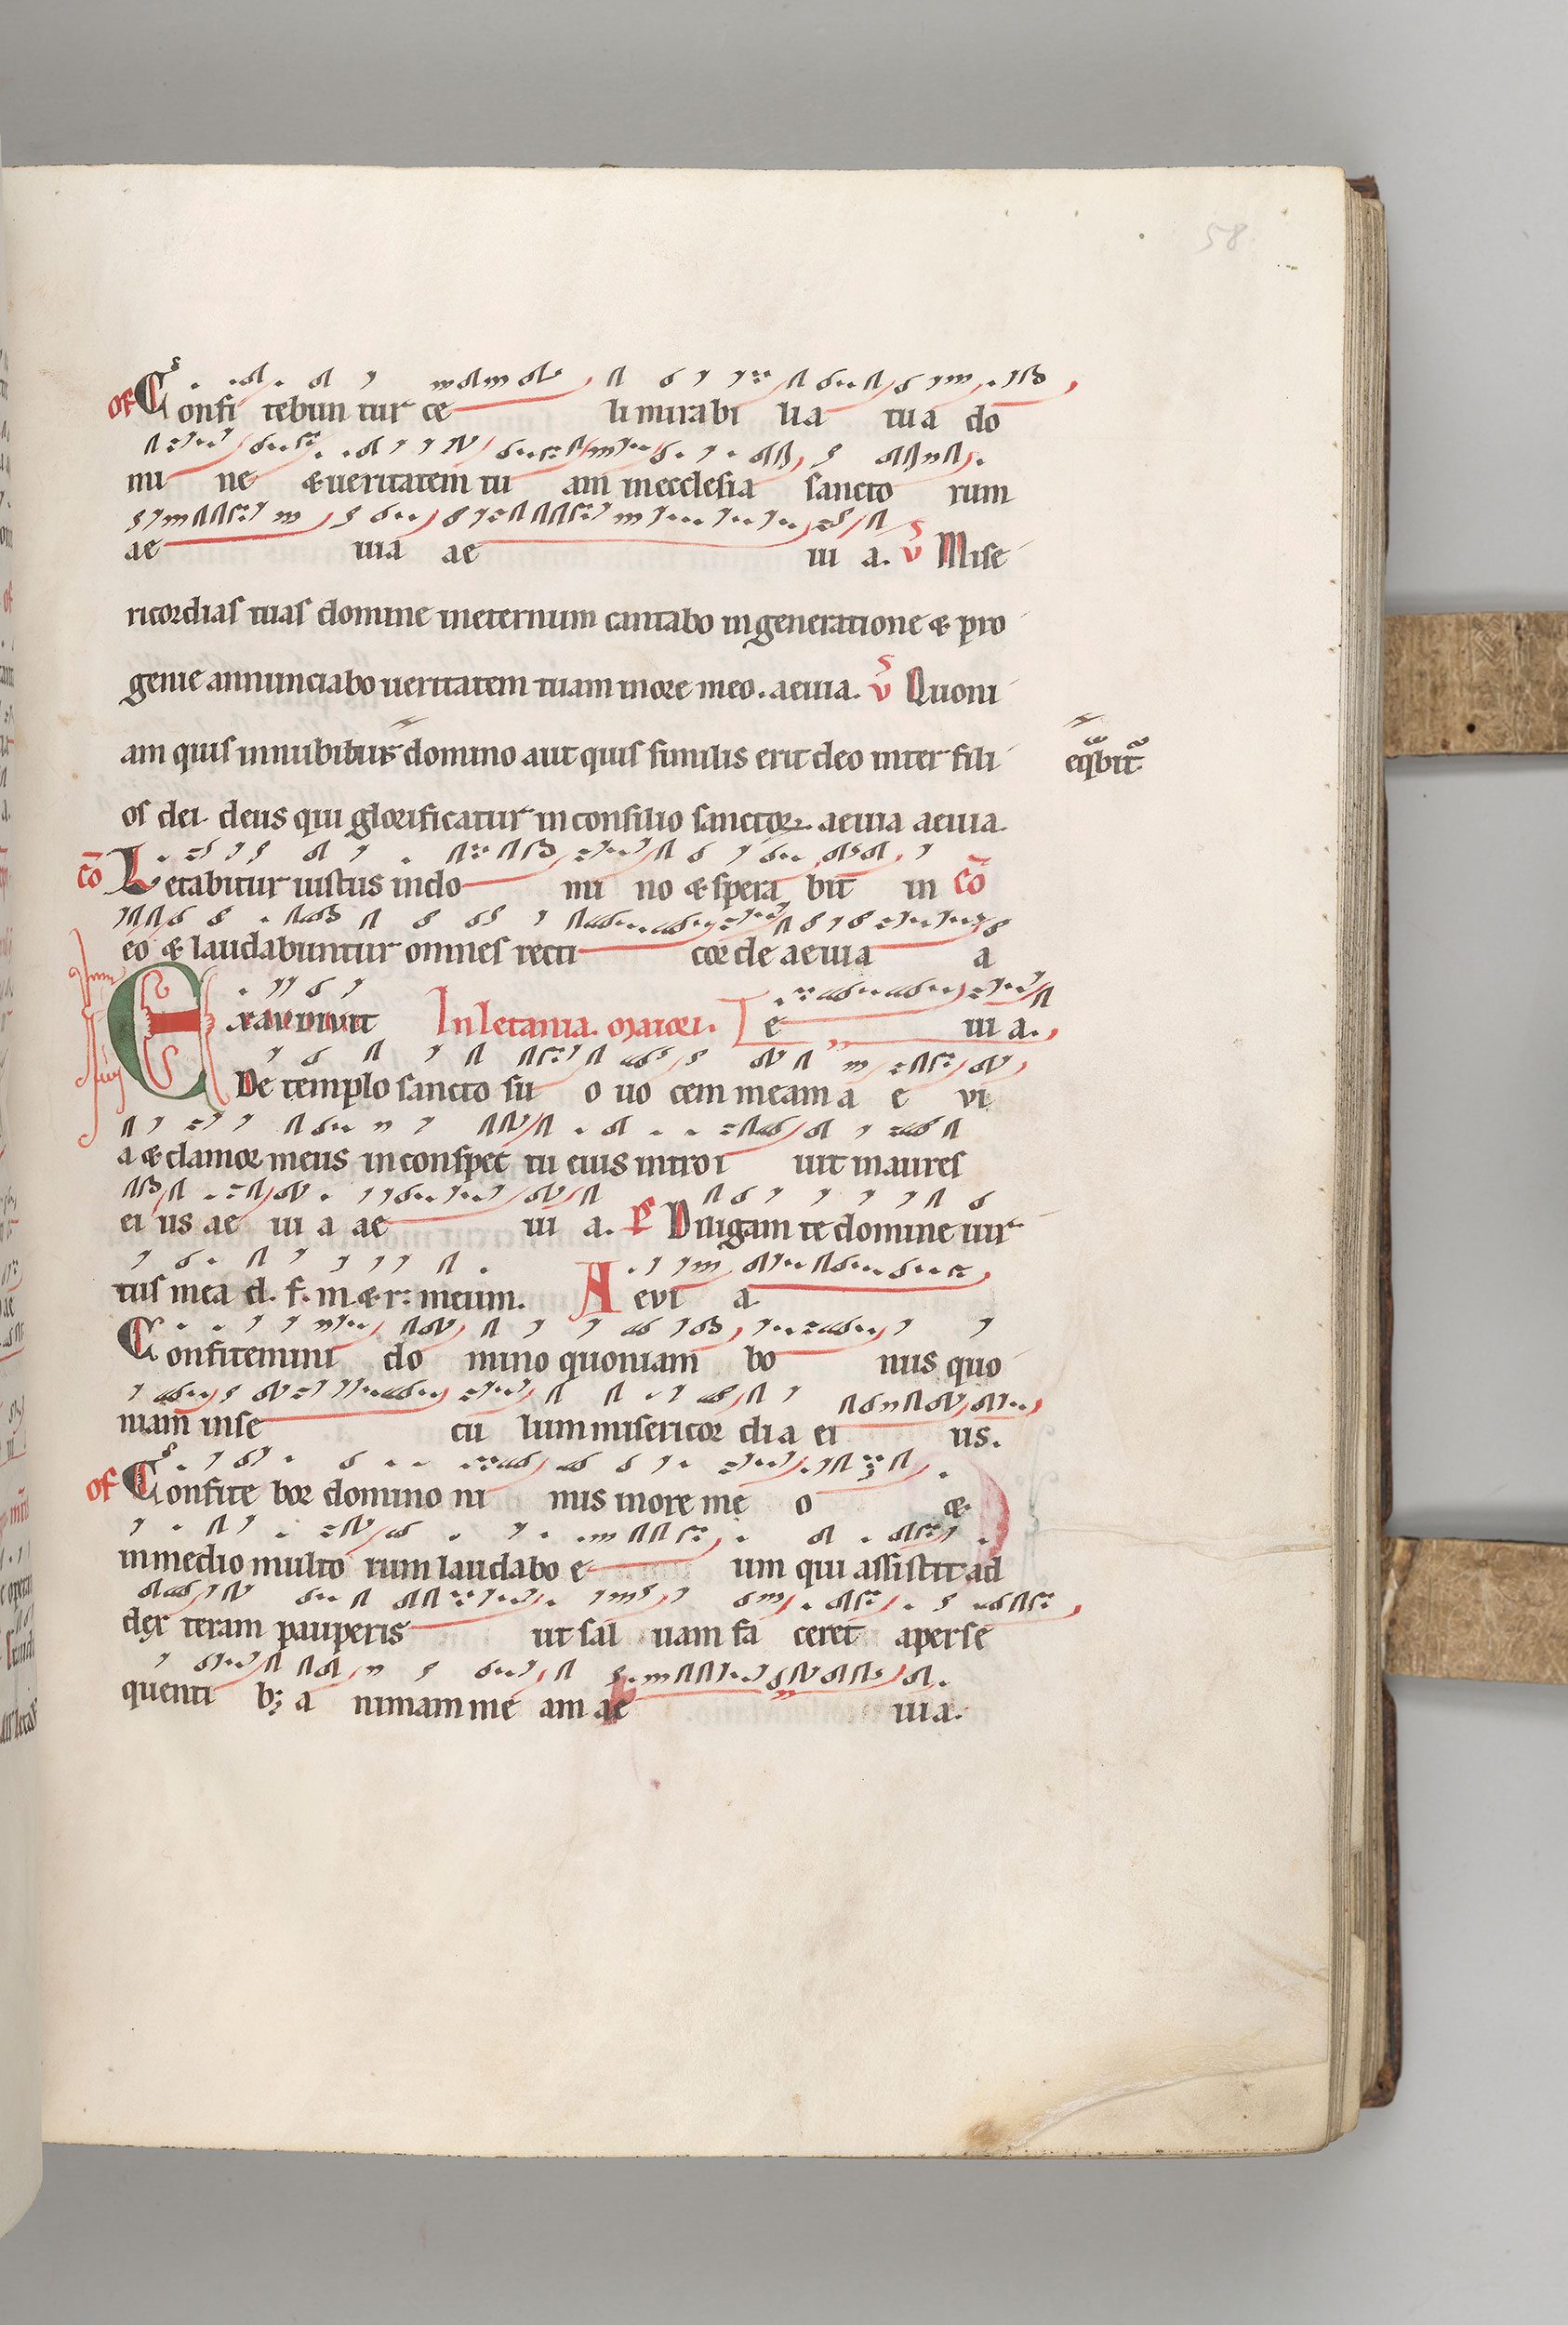 58
of Confi tebun tur ce li mirabi lia tua do
mi ne & ueritatem tu am in ecclesia sancto rum
ae uia ae ui a. v Mise
ricordias tuas domine in eternum cantabo in generatione & pro
genie annunciabo ueritatem tuam in ore meo. aeuia. v Quoni
am quis in nubibus domino aut quis similis erit deo inter fili
eqͣbitͬ
os dei. deus qui glorificatur in consilio sanctoꝝ. aeuia aeuia.
cō Letabitur iustus in do mi no & spera bit in cō
eo & laudabuntur omnes recti cor de aeuia a
Exaudiuit In letania. maiori. e ui a.
De templo sancto su o uo cem meam a e vi
a & clamor meus in conspec tu eius introi uit in aures
ei us ae ui a ae ui a. P Diligam te domine uir
tus mea d. f. m. & r. meum. A evi a
Confitemini do mino quoniam bo nus quo
niam in se cu lum misericor dia ei us.
of Confite bor domino ni mis in ore me o &
in medio multo rum laudabo e um qui assistit ad
dex teram pauperis ut sal uam fa ceret a perse
quenti bꝫ a nimam me am ae uia.